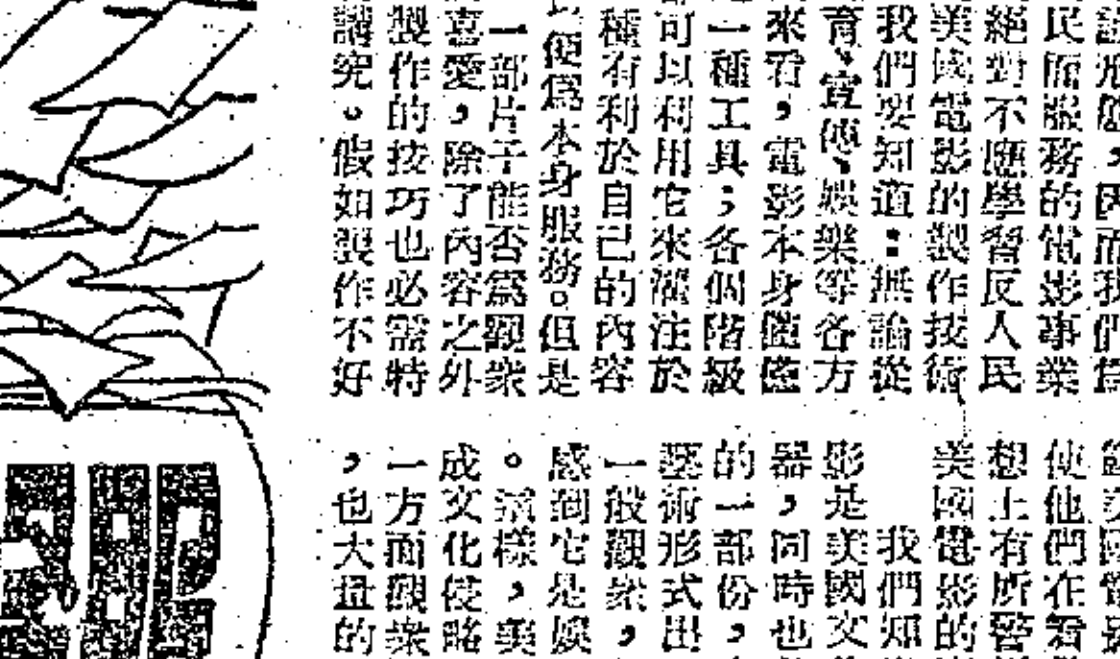 民而服務的電影事業
絕對不應學習反人民
美國電影的製作技術
我們要知道：無論從
育、宣傳、娛樂等各方
來看，電影本身僅僅
一種工具；各個階級
可以利用它來灌注於
種有利於自己的內容
便爲本身服務。但是
一部片子能否爲觀衆
喜愛，除了內容之外
製作的技巧也必需特
講究。假如製作不好
使他們在看
想上有所警
美國電影的
我們知
影是美國文
器，同時也
的一部份，
藝術形式出
一般觀衆，
感到它是娛
。這樣，美
成文化侵略
一方面觀衆
，也大量的